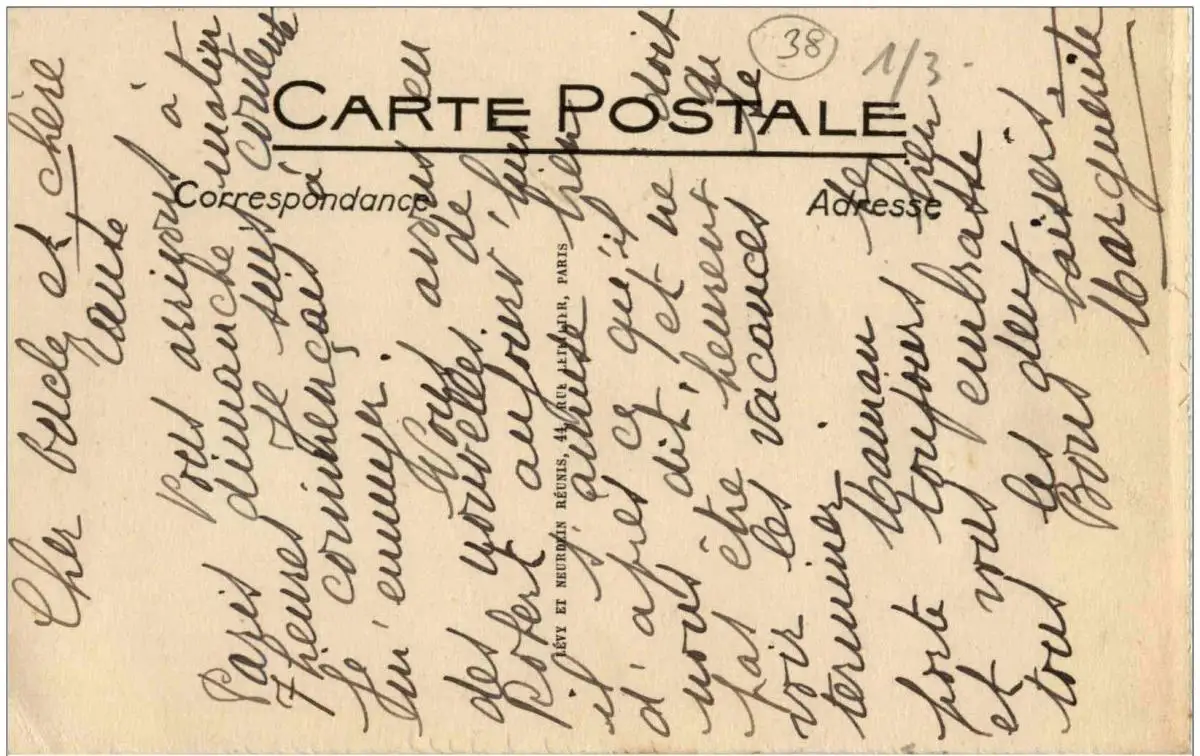 CARTE POSTALE
Correspondance
Adresse
38
1/3
Cher Oncle et chère
Tante
Nous arrivons à
Paris dimanche matin
7 heures Je suis contente
Je commençais à
m'ennuyer.
Nous avons eu
des nouvelles de
Robert aujourd'hui
il s'amuse bien
d'après ce qu'il
nous dit, et ne doit
pas être heureux de
voir les vacances se
terminer.
Maman se
porte toujours bien
et vous embrasse
tous les deux
Bons baisers
Marguerite
LÉVY ET NEURDEIN RÉUNIS, 44, RUE LETELLIER, PARIS